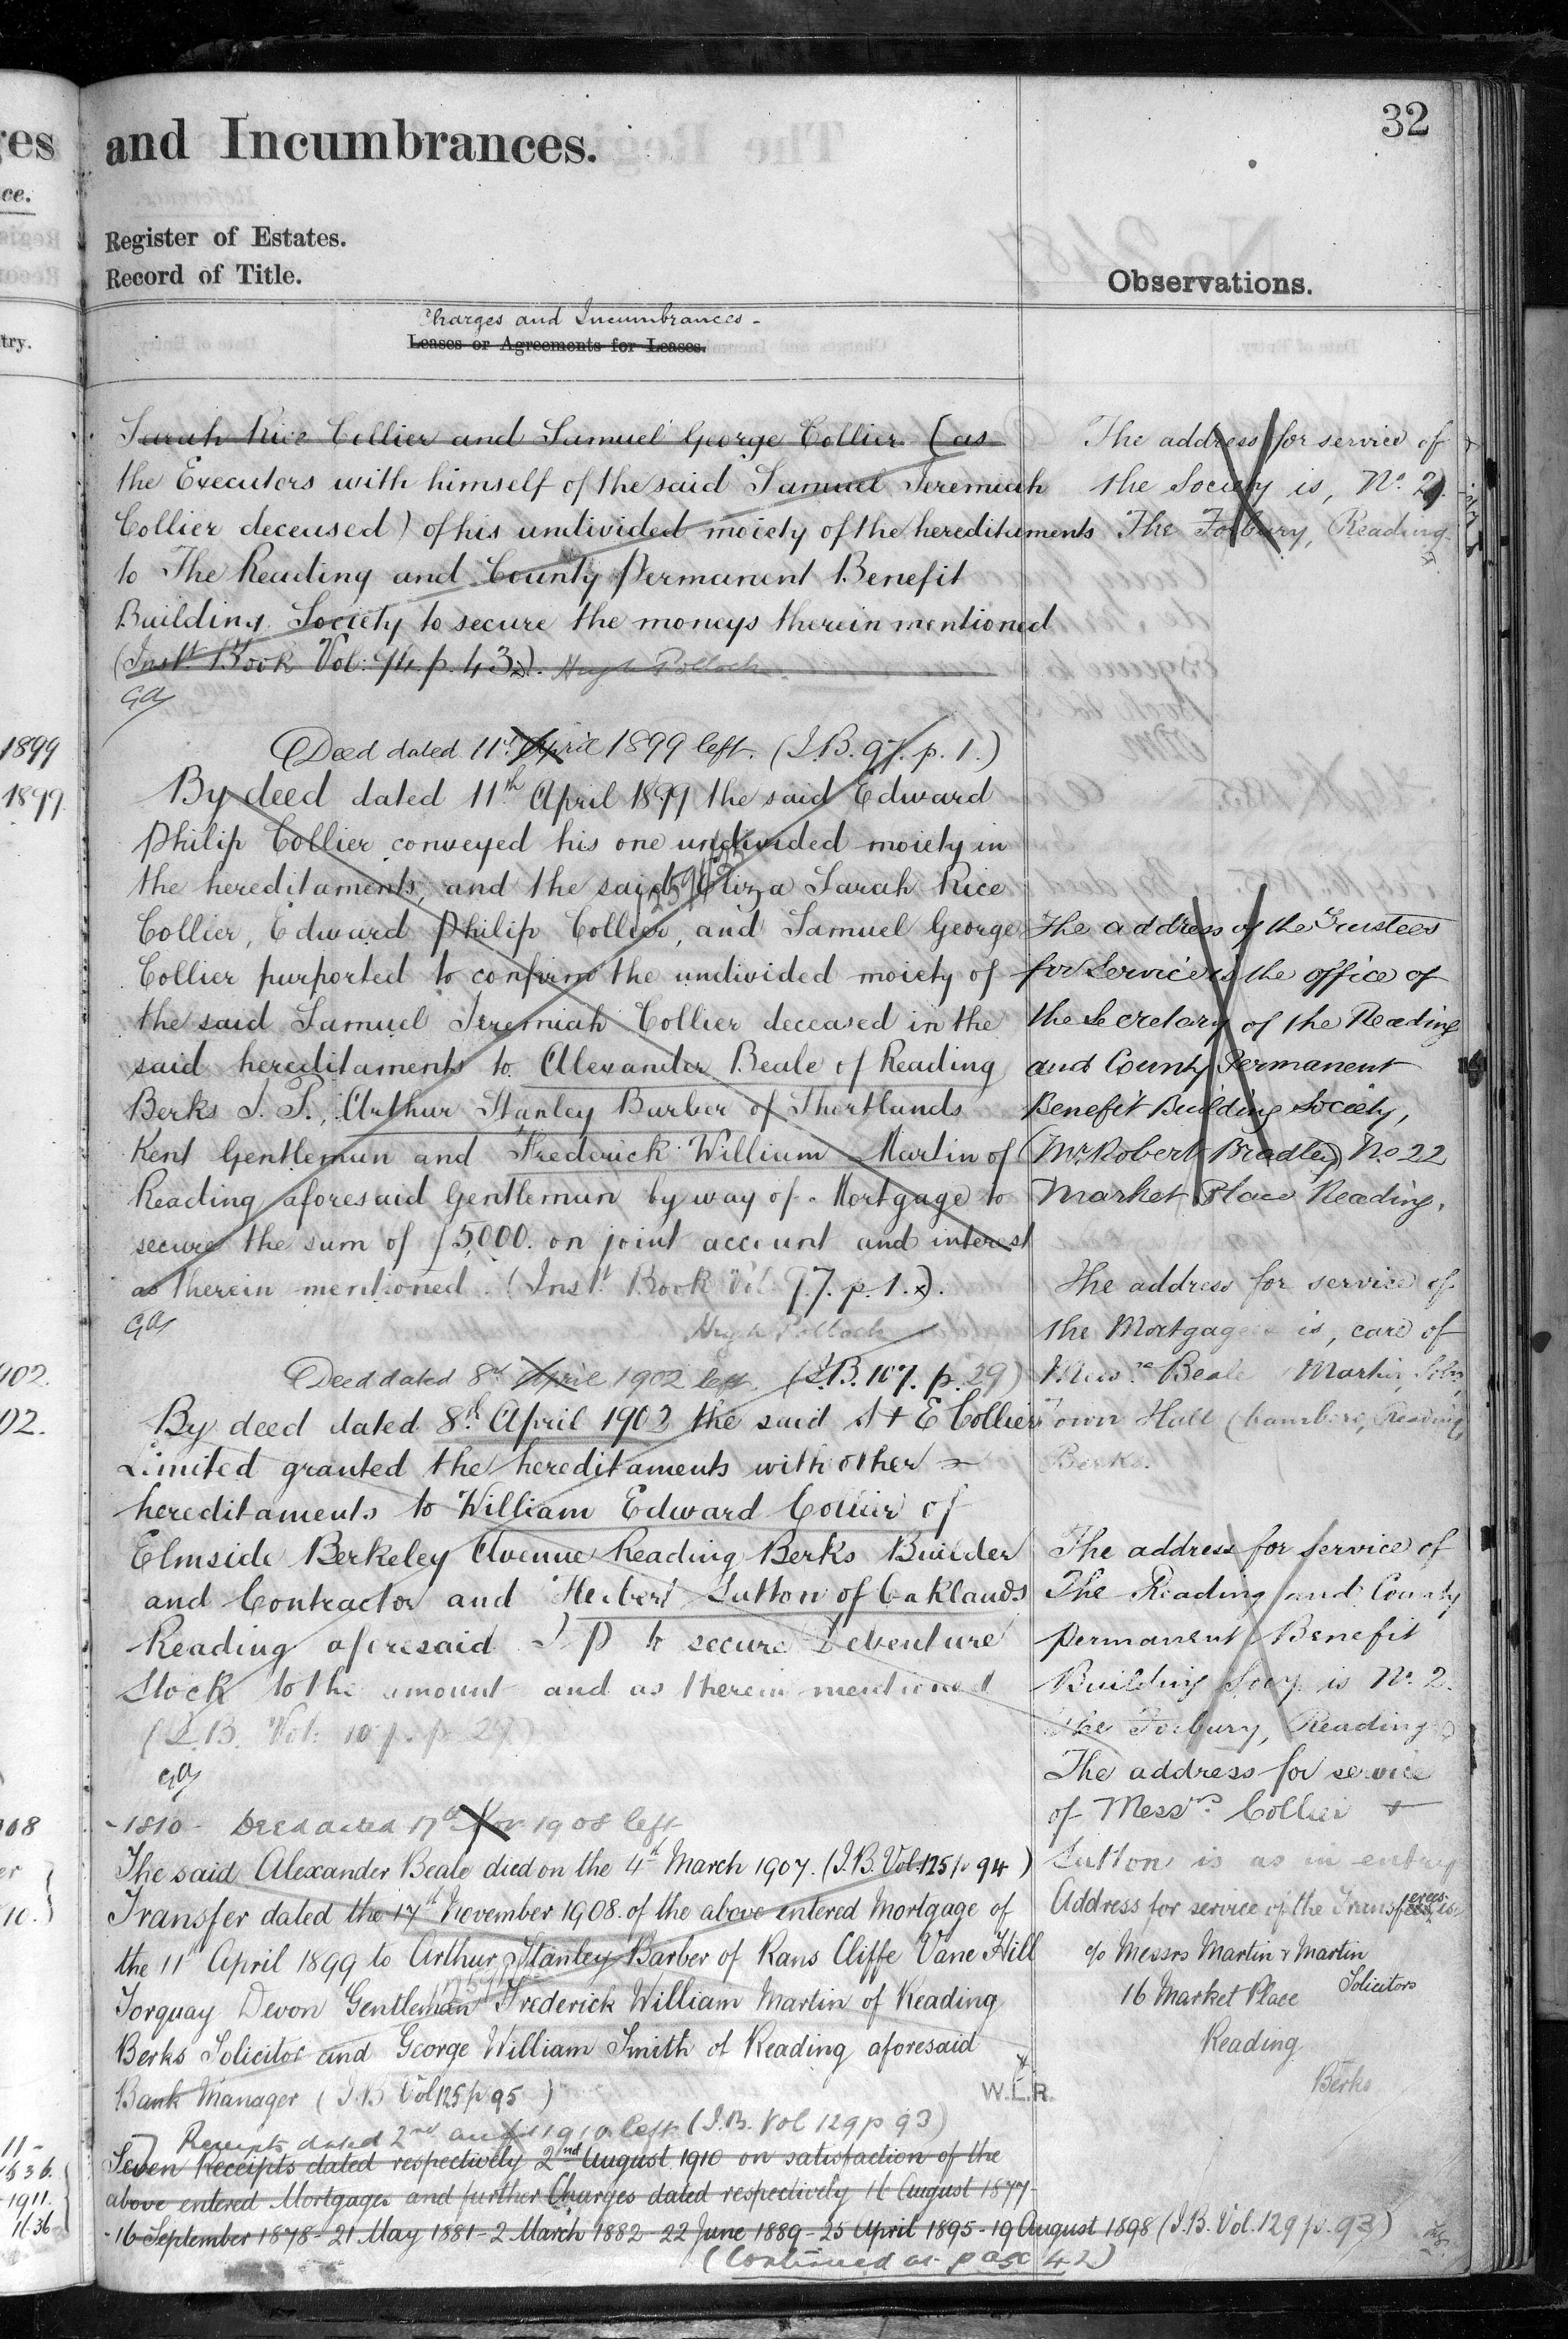 32
and Incumbrances.
Register of Estates.
Record of Title.
Observations.
Charges and Incumbrances -
Leases or Agreements for Leases.
Sarah Rice Collier and Samuel George Collier (as
the Executors with himself of the said Samuel Jeremiah
Collier deceased) of his undivided moiety of the hereditaments
to The Reading and County Permanent Benefit
Building Society to secure the moneys therein mentioned
(Inst Book Vol: 94. p. 43). Hugh Pollock
The address for service of
the Society is, No. 2
The Forbury, Reading
Deed dated 11th April 1899 left. (I.B. 97. p. 1.)
By deed dated 11th April 1899 the said Edward
Philip Collier conveyed his one undivided moiety in
the hereditaments, and the said Eliza Sarah Rice
Collier, Edward Philip Collier, and Samuel George
Collier purported to confirm the undivided moiety of
the said Samuel Jeremiah Collier deceased in the
said hereditaments to Alexander Beale of Reading
Berks J. P., Arthur Stanley Barber of Shortlands
Kent Gentleman and Frederick William Martin of
Reading aforesaid Gentleman by way of Mortgage to
secure the sum of £5,000. on joint account and interest
as therein mentioned. (Inst. Book Vol. 97. p. 1.)
Hugh Pollock
The address of the Trustees
for Service is the office of
the Secretary of the Reading
and County Permanent
Benefit Building Society,
(Mr. Robert Bradley) No 22
Market Place Reading.
The address for service of
the Mortgagees is, care of
Messrs Beale Martin,
Town Hall Chambers, Reading,
Berks.
Deed dated 8th April 1902 left. (I.B. 107. p. 29)
By deed dated 8th April 1902 the said S + E Collier
Limited granted the hereditaments with other
hereditaments to William Edward Collier of
Elmside Berkeley Avenue Reading Berks Builder
and Contractor and Herbert Sutton of Oaklands
Reading aforesaid J P to secure Debenture
Stock to the amount and as therein mentioned
(I.B. Vol: 107. p. 29)
The address for service of
The Reading and County
Permanent Benefit
Building Socy. is No. 2.
The Forbury, Reading
The address for service
of Messrs. Collier +
Sutton is as in entry
-1810- Deed dated 17th Nov 1908 left
The said Alexander Beale died on the 4th March 1907. (I.B. Vol 125 p 94)
Transfer dated the 17th November 1908. of the above entered Mortgage of
the 11th April 1899 to Arthur Stanley Barber of Rans Cliffe Vane Hill
Torquay Devon Gentleman Frederick William Martin of Reading
Berks Solicitor and George William Smith of Reading aforesaid
Bank Manager (I.B Vol 125 p 95)
W.L.R.
Address for service of the Transferees is
c/o Messrs Martin & Martin
Solicitors
16 Market Place
Reading
Berks
Receipts dated 2nd Aug 1910 left (I.B. Vol 129 p 93)
Seven Receipts dated respectively 2nd August 1910 on satisfaction of the
above entered Mortgages and further Charges dated respectively 16 August 1877-
-16 September 1878 - 21 May 1881 - 2 March 1882 - 22 June 1889 - 25 April 1895 - 19 August 1898 (I.B. Vol. 129 p. 93)
(Continued at page 42)
1899
1899